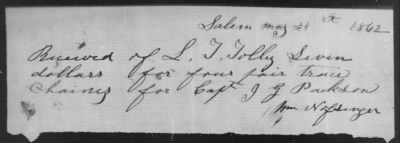 Salem may 21th 1862
Received of L. T. Tolly Seven
dollars for four pair trace
Chaines for Capt J G Paxson
Wm Nofsinger